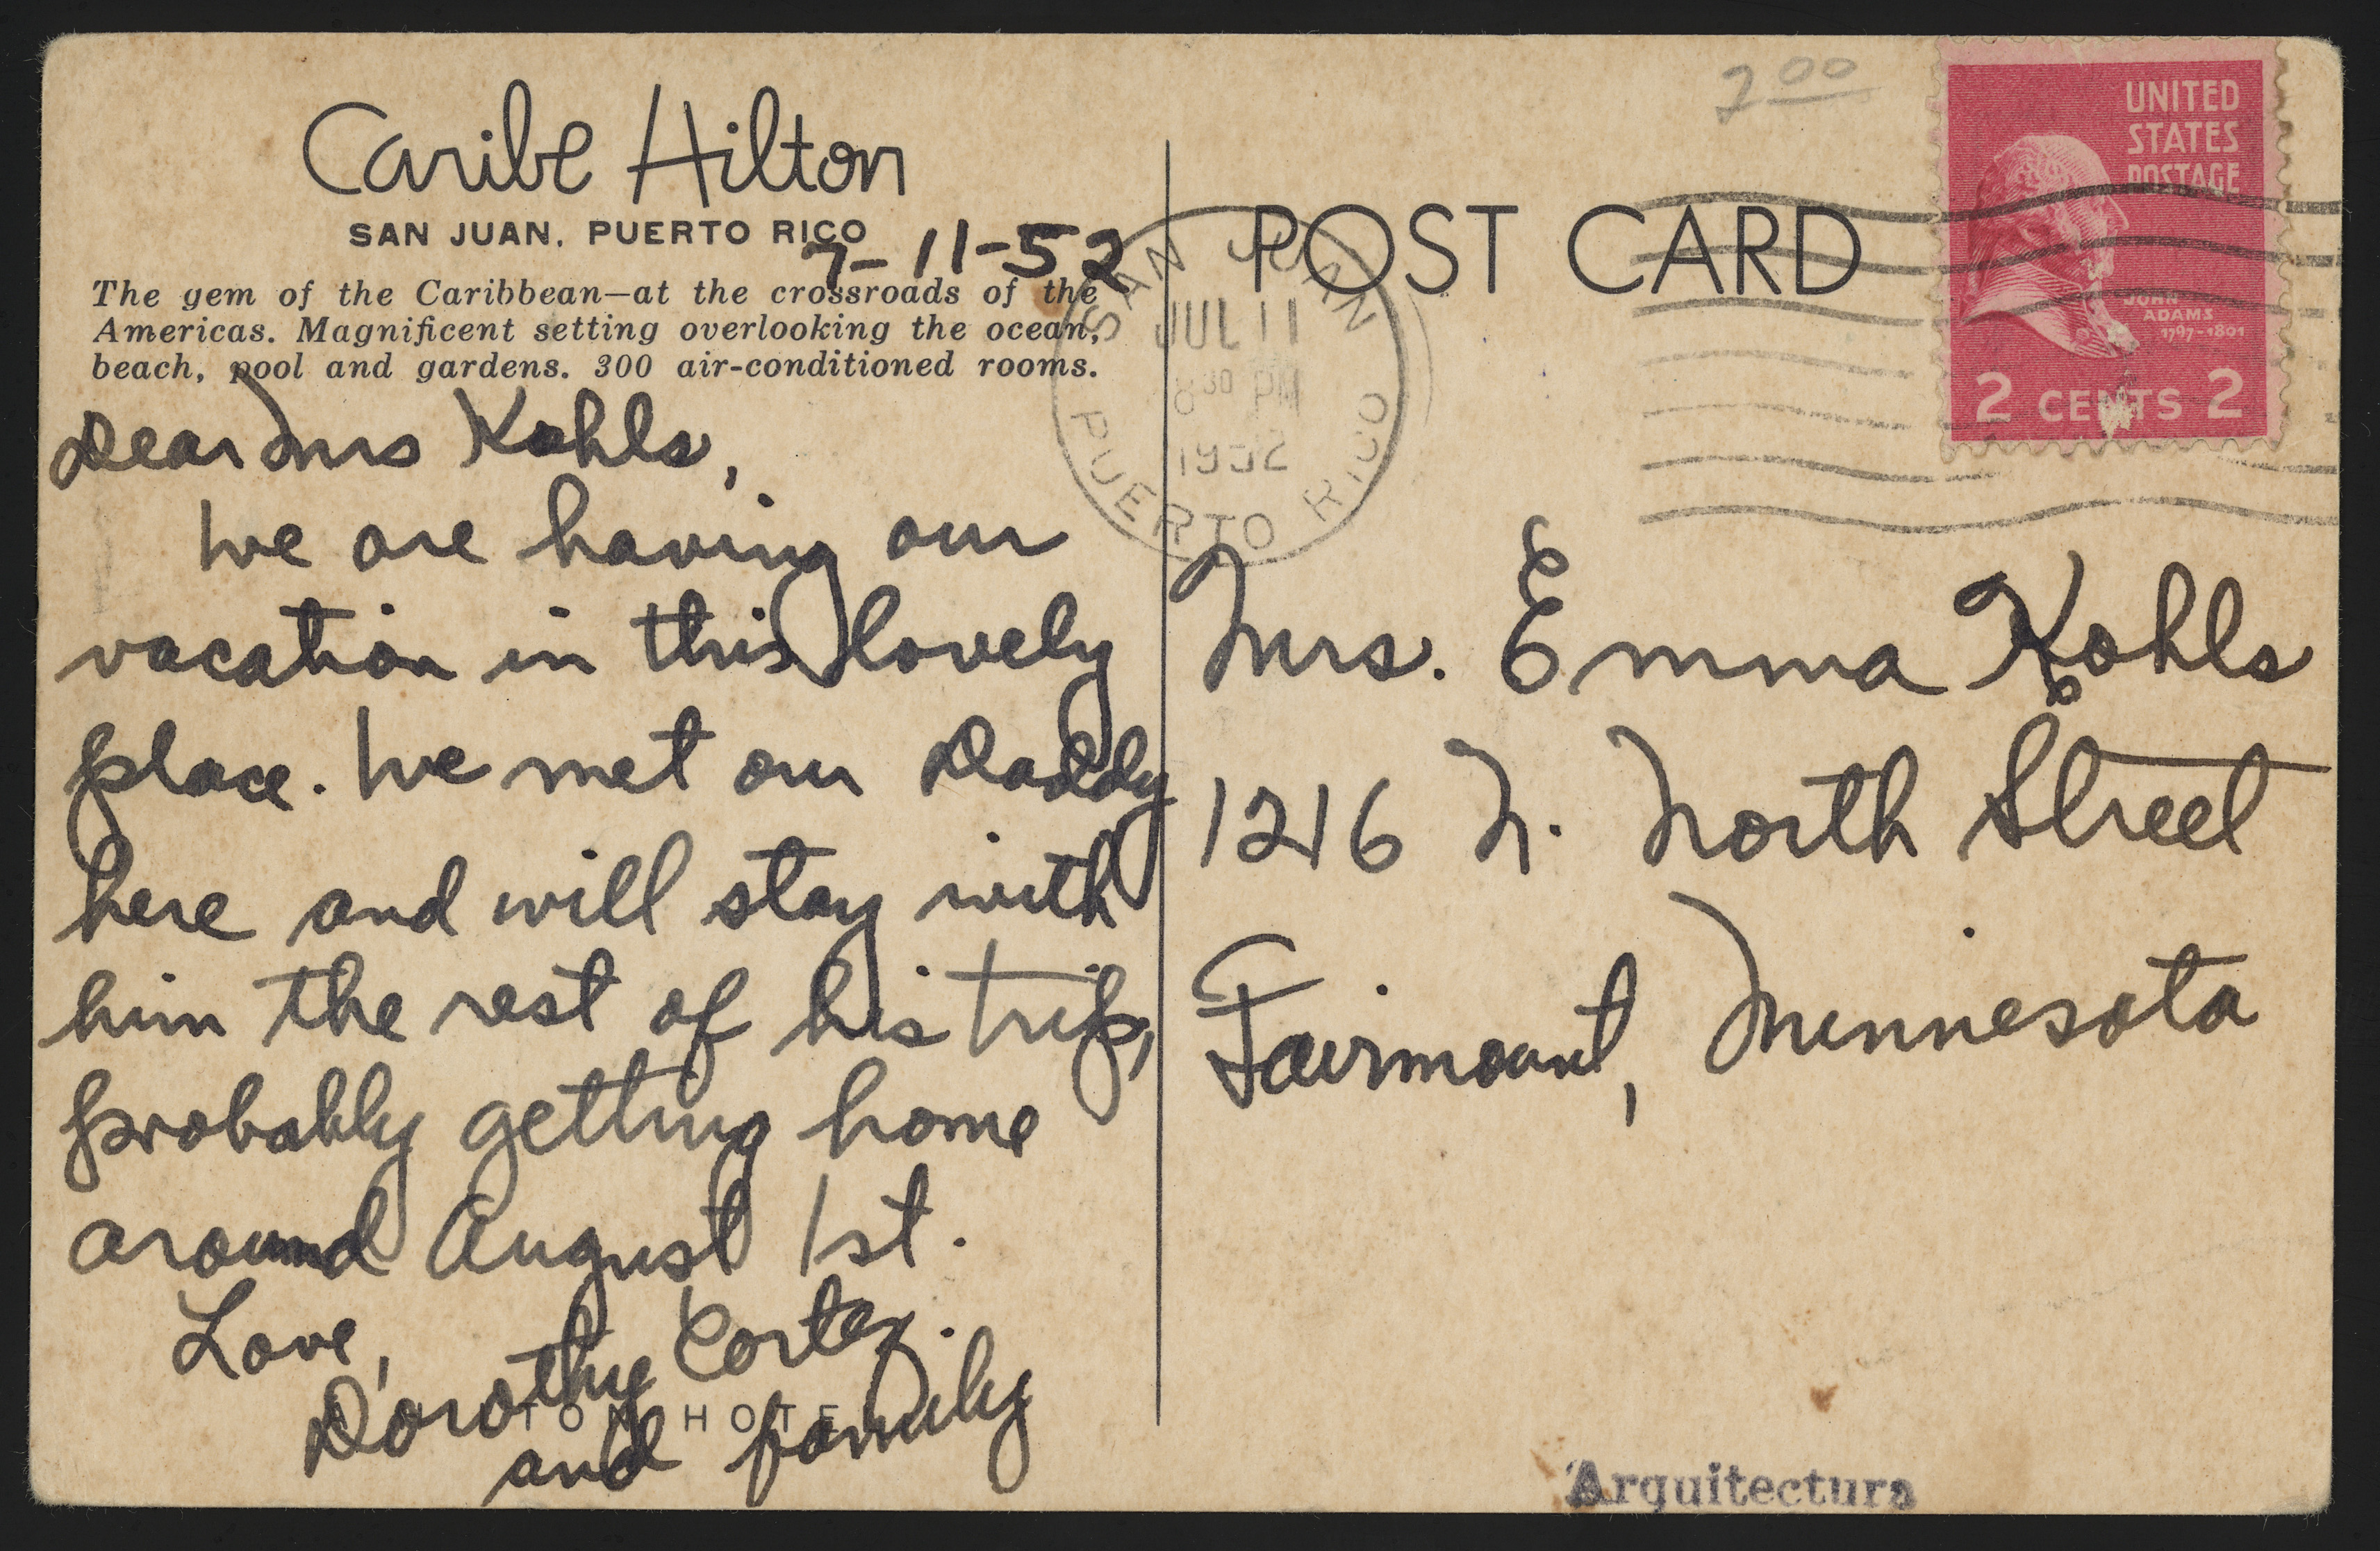 Caribe Hilton
SAN JUAN, PUERTO RICO
7-11-52
The gem of the Caribbean—at the crossroads of the
Americas. Magnificent setting overlooking the ocean,
beach, pool and gardens. 300 air-conditioned rooms.
Dear Mrs Kohls,
We are having our
vacation in this lovely
place. We met our Daddy
here and will stay with
him the rest of his trip,
probably getting home
around August 1st.
Love,
Dorothy Cortez
and family
HOTE
POST CARD
2 00
SAN JUAN
JUL 11
8 30 PM
1952
PUERTO RICO
UNITED
STATES
POSTAGE
JOHN
ADAMS
1797-1801
2 CENTS 2
Mrs. Emma Kohls
1216 N. North Street
Fairmount, Minnesota
Arquitectura